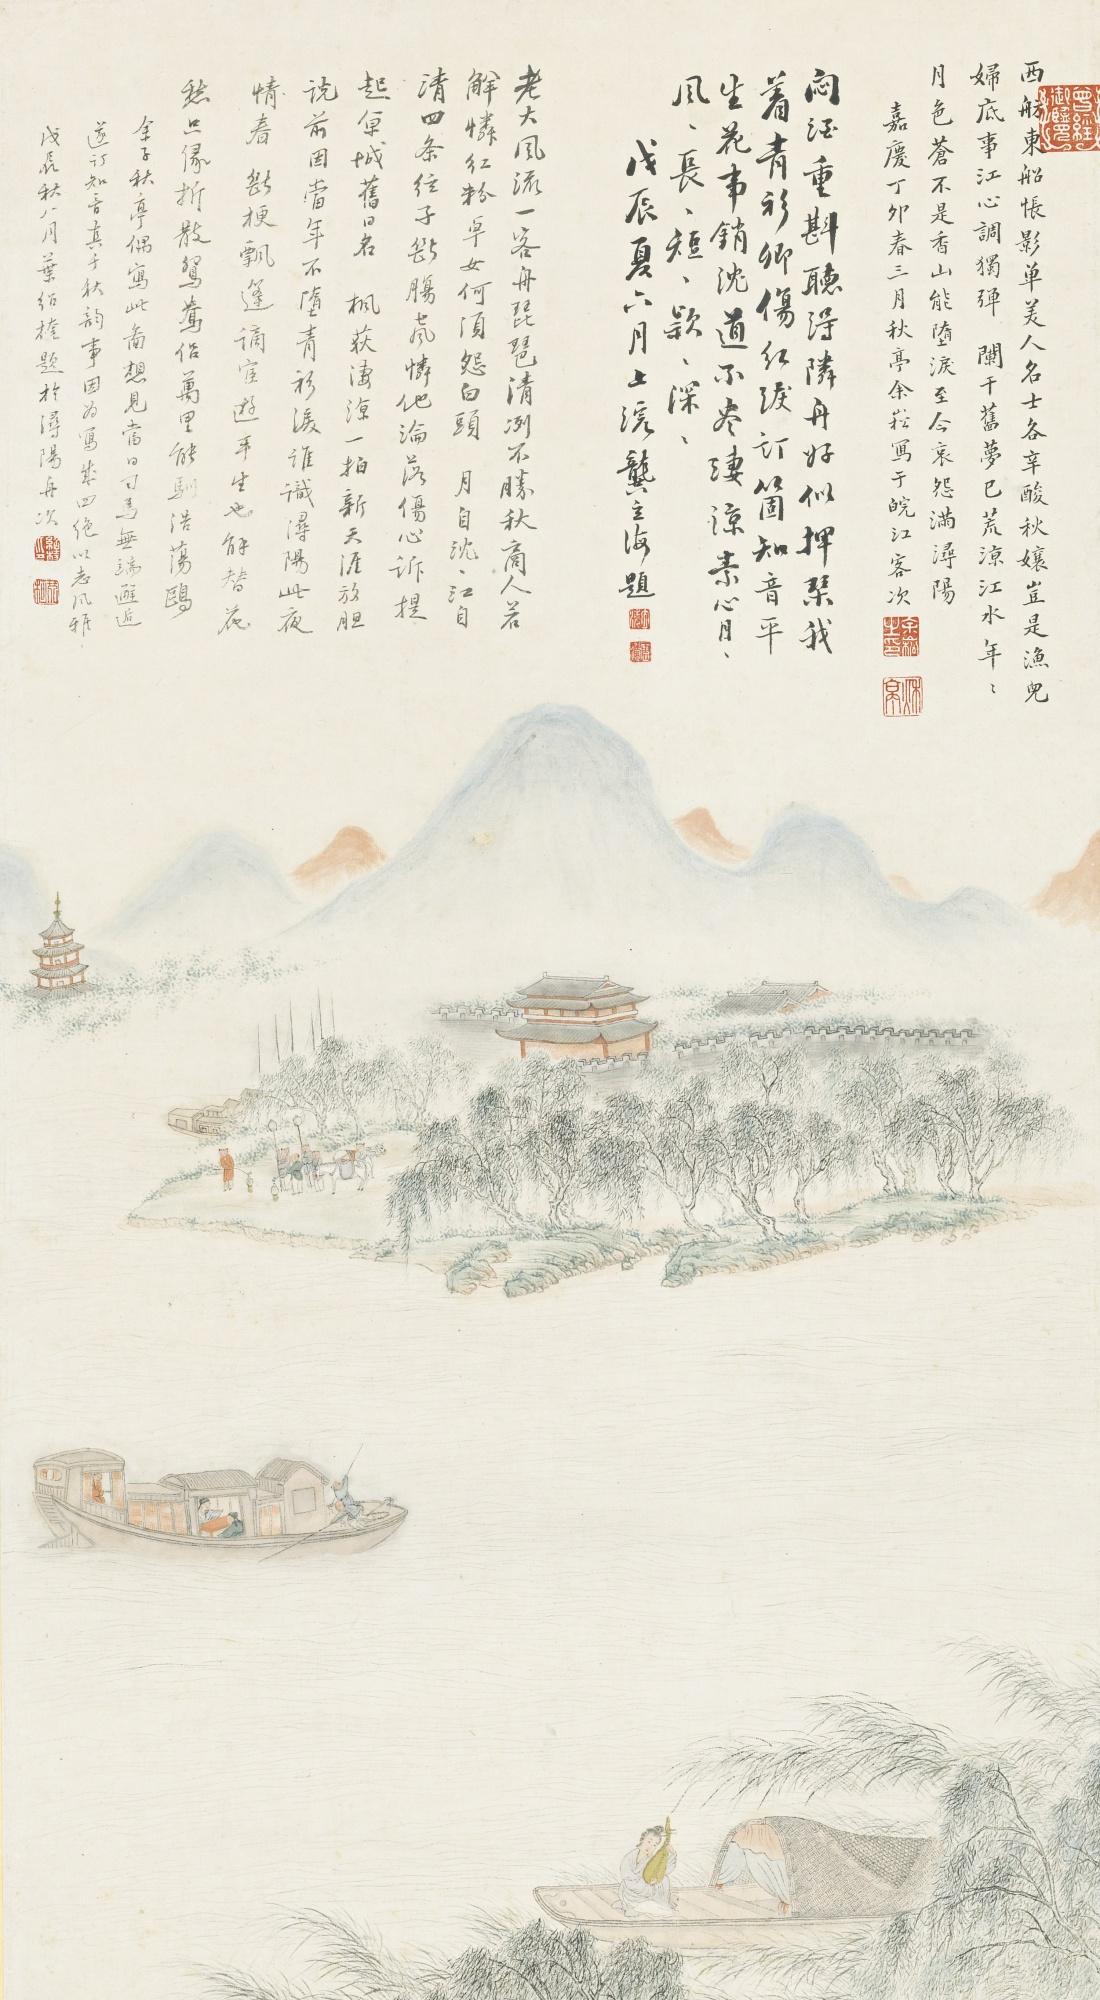 西舫東船悵影單美人名士各辛酸秋孃豈是漁兒
婦底事江心調獨彈　闌干舊夢已荒涼江水年〻
月色蒼不是香山能墮淚至今哀怨滿潯陽
嘉慶丁卯春三月秋亭余崧寫于皖江客次
悶酒重斟聽得隣舟好似押琹我
着青衫卿傷紅淚訂箇知音平
生花事銷沈道不盡淒涼素心月〻
風〻長〻短〻款〻深〻
戊辰夏六月上浣龔立海題
老大風流一客舟琵琶清冽不勝秋商人若
解憐紅粉卓女何須怨白頭　月自沈〻江自
清四条弦子斷腸声憐他淪落傷心訴提
起皇城舊日名　楓荻淒涼一拍新天涯放胆
說前因當年不墮青衫淚誰識潯陽此夜
情春　斷梗飄蓬謫宦遊半生也解替花
愁只緣折散鴛鴦侶萬里能馴浩蕩鷗
余子秋亭偶寫此啚想見當日司馬無端邂逅
遂訂知音真千秋韵事因爲寫出四絕以志風雅
戊辰秋八月葉紹㮤題於潯陽舟次